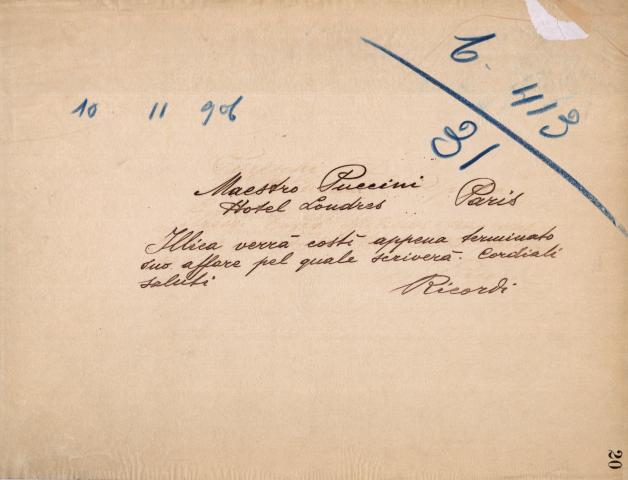 10 11 906
6. 4/3
31
Maestro Puccini Paris
Hotel Londres
Illica verrà costì appena terminato
suo affare pel quale scriverà. Cordiali
saluti
Ricordi
20